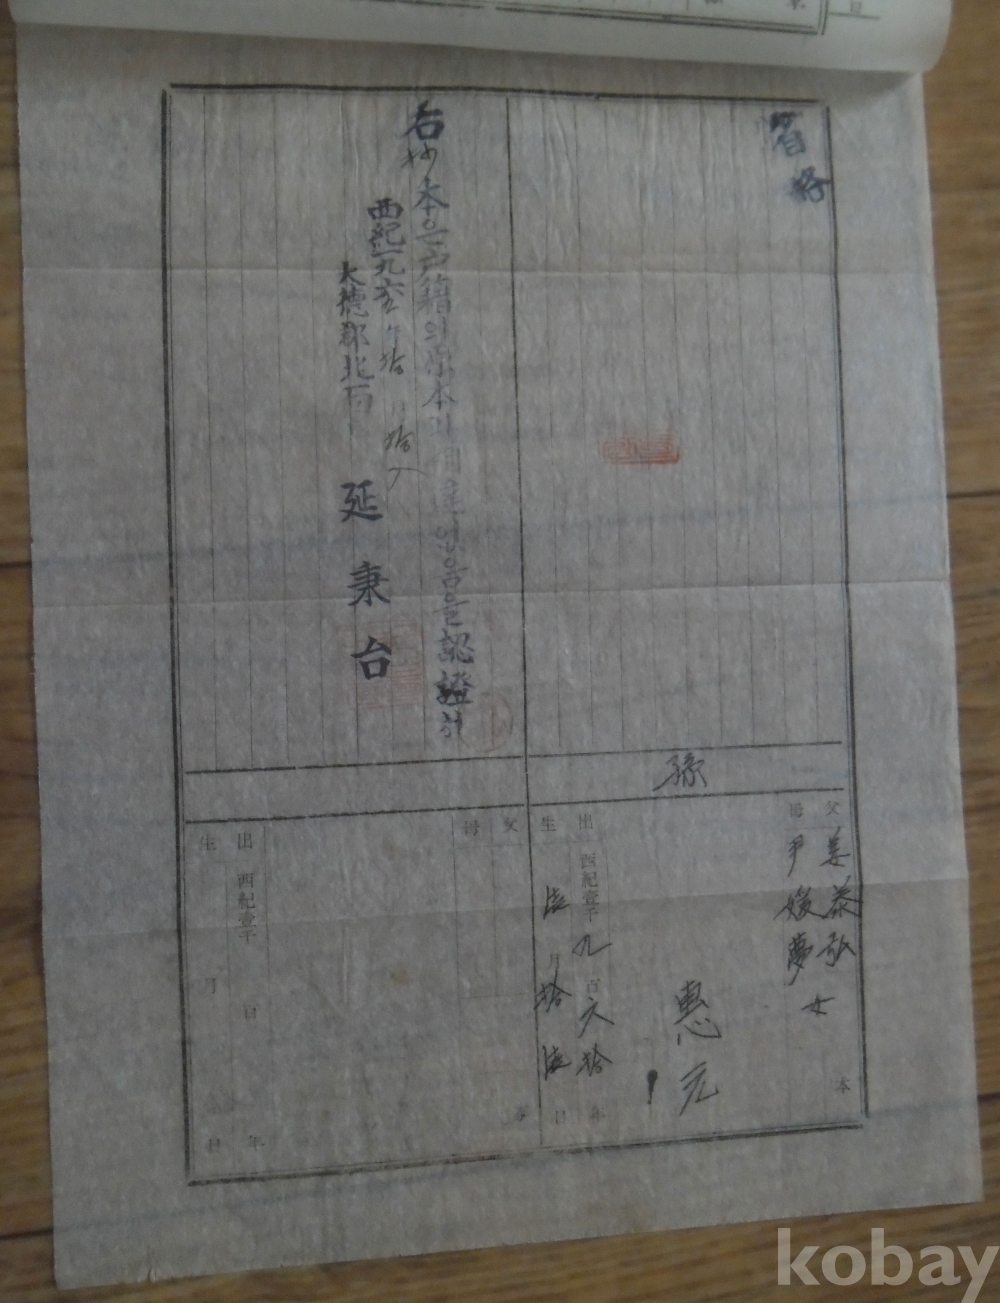 省略
孫
父
姜泰弘
母
尹媛夢
女
本
惠元
出
生
西紀壹千九百六拾年
陸月拾陸日
右抄本은戶籍의原本과相違없음을認證함
西紀一九六
年拾月拾
大德郡北面
延秉台
父
母
出
生
西紀壹千
百
年
月
日
kobay